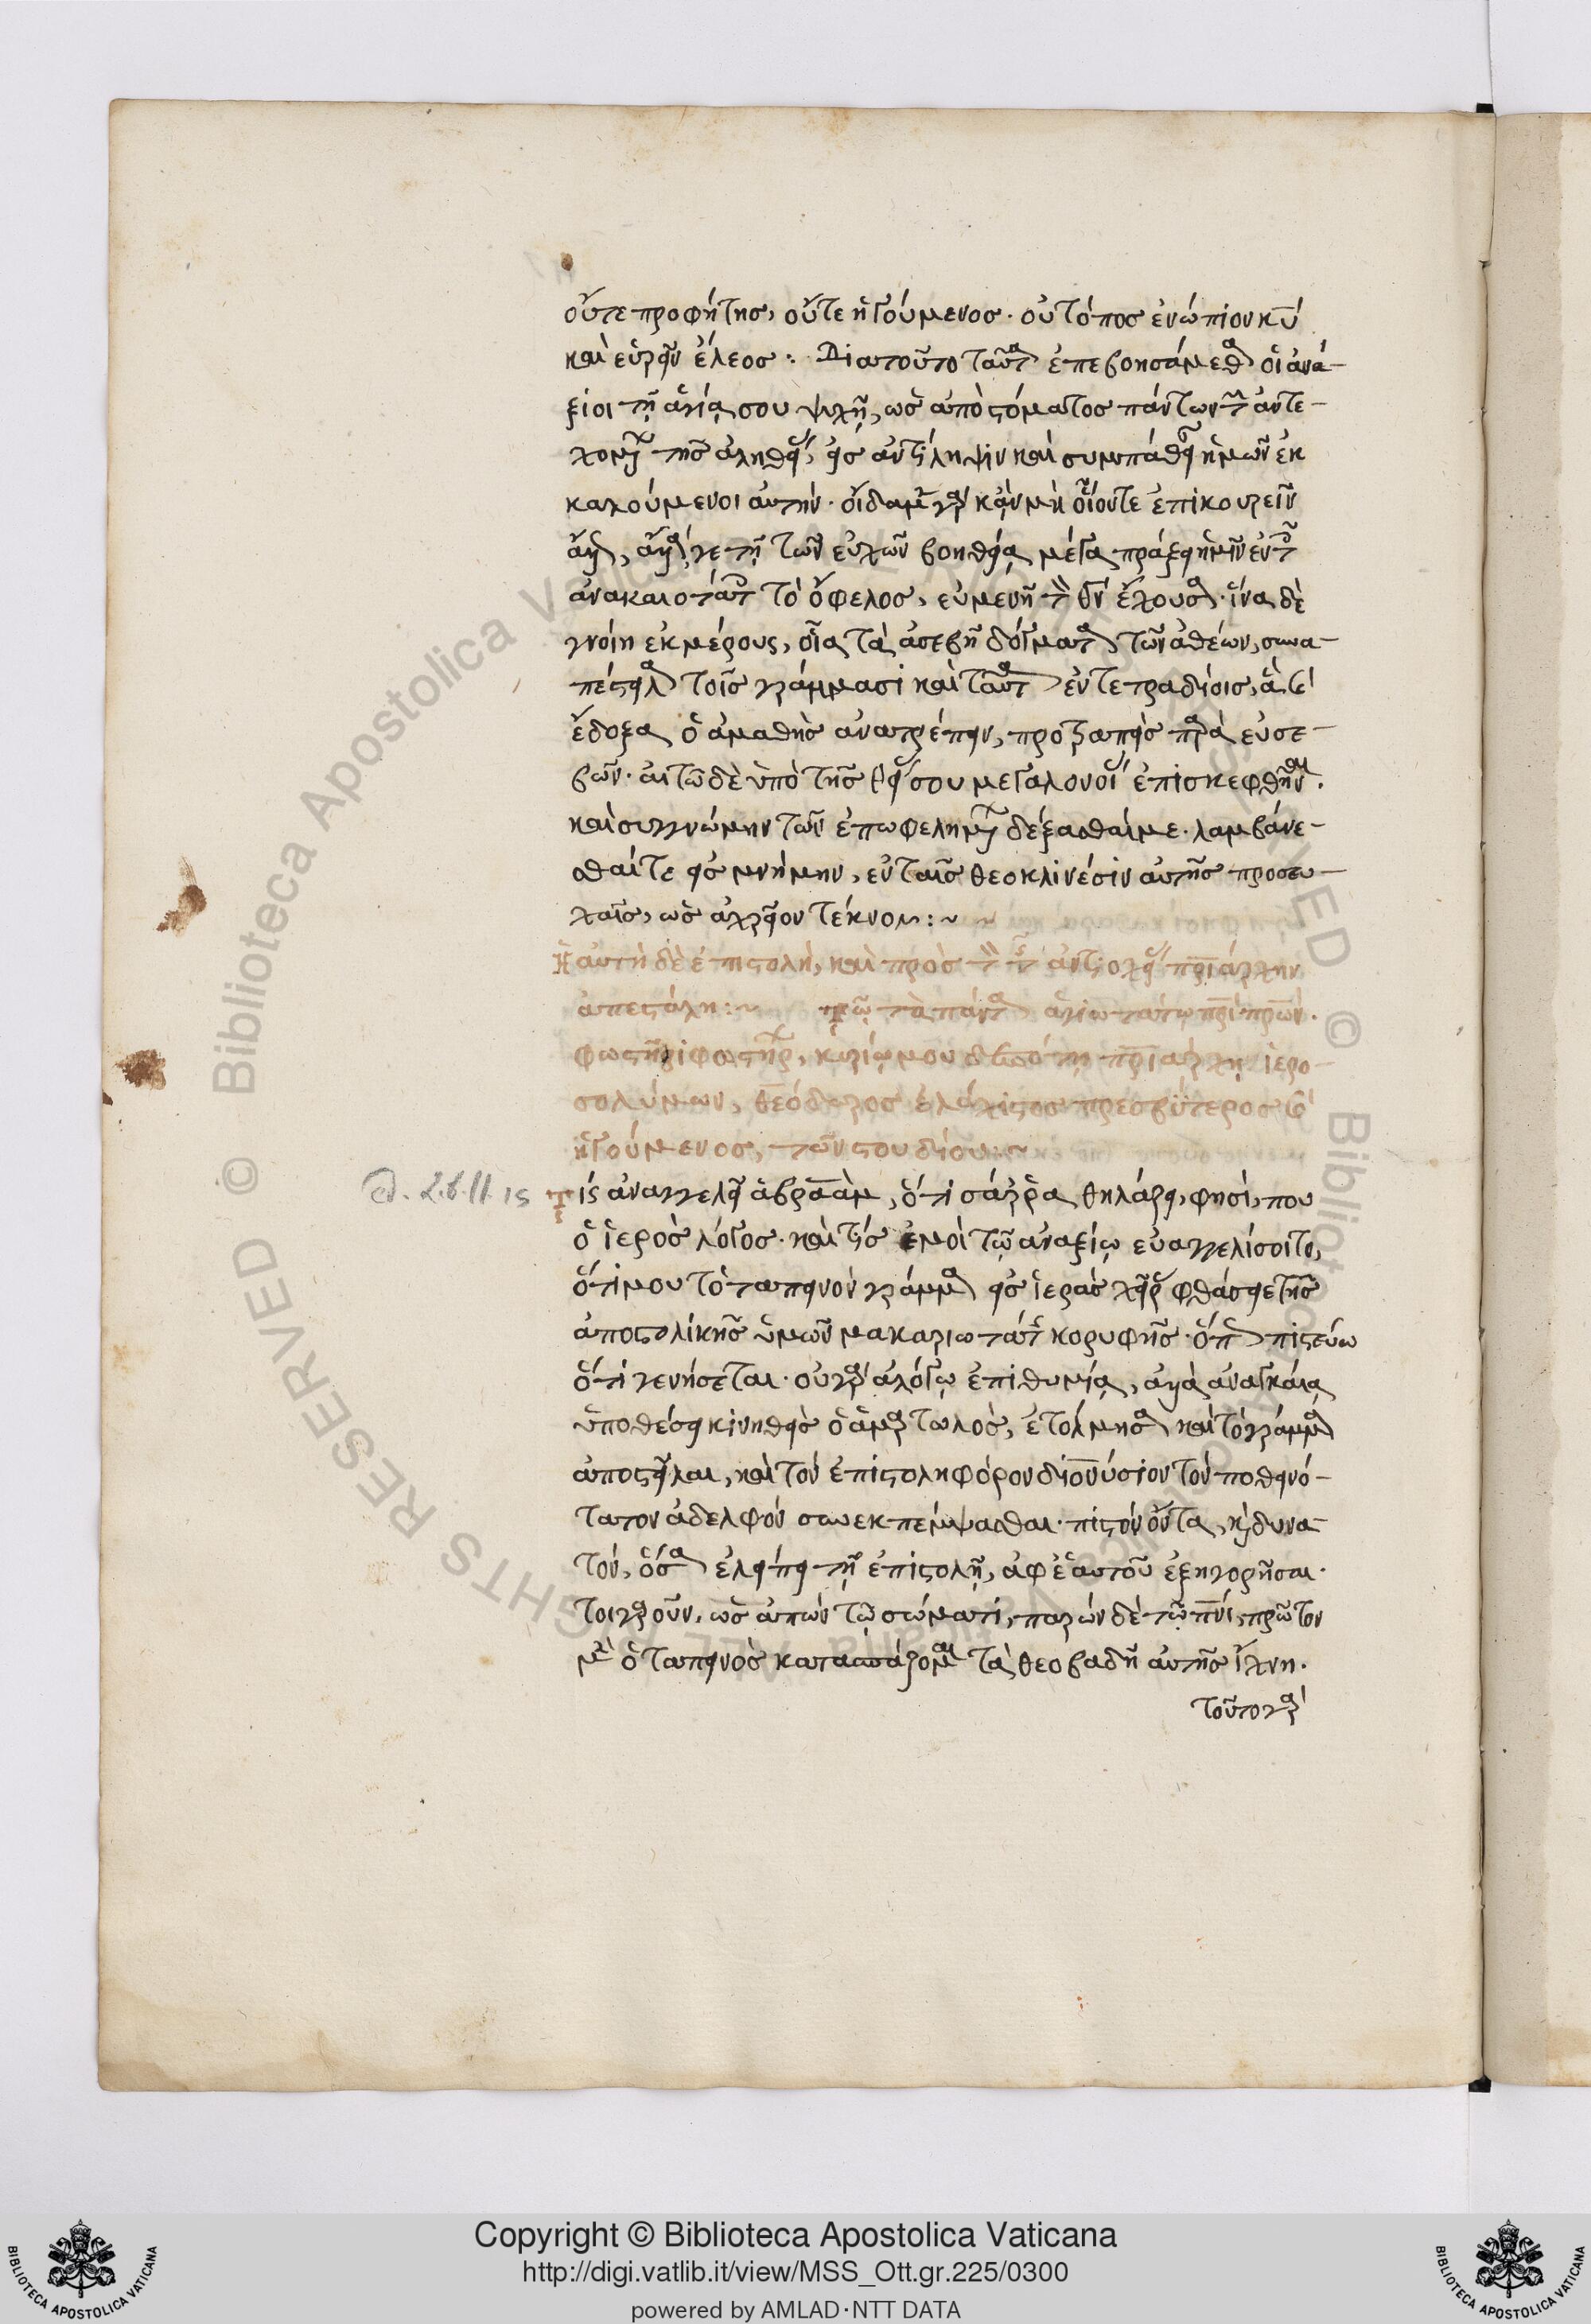 οὔτε προφήτης, οὔτε ἡγούμενος. οὐ τόπος ἐνώπιον κυ
καὶ εὑρεῖν ἔλεος : Διατοῦτο ταῦτα ἐπεβοησάμεθα οἱ ἀνά-
ξιοι τῇ ἁγίᾳ σου ψυχῇ, ὡς ἀπὸ στόματος πάντων τῶν ἀντε-
χομένων τῆς ἀληθείας, εἰς ἀντίληψιν καὶ συμπάθειαν ἡμῶν ἐκ
καλούμενοι αὐτήν. οἴδαμεν γὰρ κἂν μὴ οἷόντε ἐπικουρεῖν
ἄλλως, ἀλλά γε τῇ τῶν εὐχῶν βοηθείᾳ μέγα πράξει ἡμῖν ἐν τοῖς
ἀνακαιοτάτοις τὸ ὄφελος, εὐμενῆ τὸν θν ἔχουσα. ἵνα δὲ
γνοίη ἐκμέρους, οἷα τὰ ἀσεβῆ δόγματα τῶν ἀθέων, συνα-
πέστειλα τοῖς γράμμασι καὶ ταῦτα ἐν τετραδίοις, ἅ τέ
ἔδοξα ὁ ἀμαθὴς ἀνατρέπειν, προτραπεὶς παρὰ εὐσε-
βῶν. αἰτῶ δὲ ὑπὸ τῆς θείας σου μεγαλονοίας ἐπισκεφθῆναι.
καὶ συγγνώμην τῶν ἐπωφελημένων δέξασθαί με. λαμβάνε-
σθαί τε εἰς μνήμην, ἐν ταῖς θεοκλινέσιν αὐτῆς προσευ-
χαῖς, ὡς ἀχρεῖον τέκνον : ~
Ἡ αὐτὴ δὲ ἐπιστολὴ, καὶ πρὸς τὸν τῆς ἀντιοχείας πριάρχην
ἀπεστάλη : ~ τῷ τὰ πάντα ἁγιωτάτω πρὶ πρων.
φωστῆρι φωστήρων, κυρίῳ μου δεσπότῃ πριάρχῃ ἱερο-
σολύμων, θεόδωρος ἐλάχιστος πρεσβύτερος καὶ
ἡγούμενος, τῶν στουδίου : ~
15 Τίς ἀναγγελεῖ ἁβραὰμ, ὅτι σάῤῥα θηλάζει, φησί, που
ὁ ἱερὸς λόγος. καὶ τίς ἐμοὶ τῷ ἀναξίῳ εὐαγγελίσοιτο,
ὅτι μου τὸ ταπεινὸν γράμμα εἰς ἱερὰς χεῖρας φθάσειε τῆς
ἀποστολικῆς ὑμῶν μακαριωτάτης κορυφῆς. ὅπερ πιστεύω
ὅτι γενήσεται. οὐ γὰρ ἀλόγῳ ἐπιθυμίᾳ, ἀλλὰ ἀναγκαίᾳ
ὑποθέσει κινηθεὶς ὁ ἁμαρτωλὸς, ἐτόλμησα καὶ τὸ γράμμα
ἀποστεῖλαι, καὶ τὸν ἐπιστοληφόρον διονύσιον τὸν ποθεινό-
τατον ἀδελφὸν συνεκπέμψασθαι. πιστὸν ὄντα, καὶ δυνα
τὸν, ὅσα ἐλείπει τῇ ἐπιστολῇ, ἀφ' ἑαυτοῦ ἐξηγορῆσαι.
τοιγαροῦν, ὡς ἀπὼν τῷ σώματι, παρὼν δὲ τῷ πνι, πρῶτον
μὲν ὁ ταπεινὸς κατασπάζομαι τὰ θεοβαδῆ αὐτῆς ἴχνη.
τοῦτο γὰρ
Copyright © Biblioteca Apostolica Vaticana
http://digi.vatlib.it/view/MSS_Ott.gr.225/0300
powered by AMLAD·NTT DATA